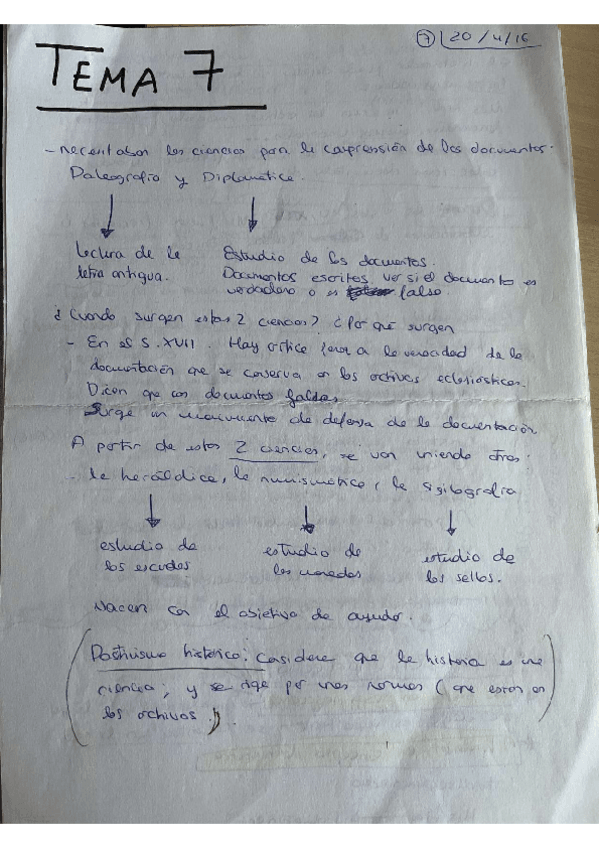 7 20/4/16
TEMA 7
- Necesitaban las ciencias para la comprensión de los documentos.
Paleografía y Diplomática.
Lectura de la
letra antigua.
Estudio de los documentos.
Documentos escritos, ver si el documento es
verdadero o es falso
¿Cuándo surgen estas 2 ciencias? ¿Por qué surgen
- En el S. XVII. Hay crítica frente a la veracidad de la
documentación que se conserva en los archivos eclesiásticos.
Dicen que son documentos falsos.
Surge un movimiento de defensa de la documentación
A partir de estas 2 ciencias, se van uniendo otras.
- la heráldica, la numismática, la sigilografía
estudio de
los escudos
estudio de
las monedas
estudio de
los sellos.
Nacen con el objetivo de ayudar.
(Positivismo histórico: Considera que la historia es una
ciencia; y se rige por unas normas (que están en
los archivos.))